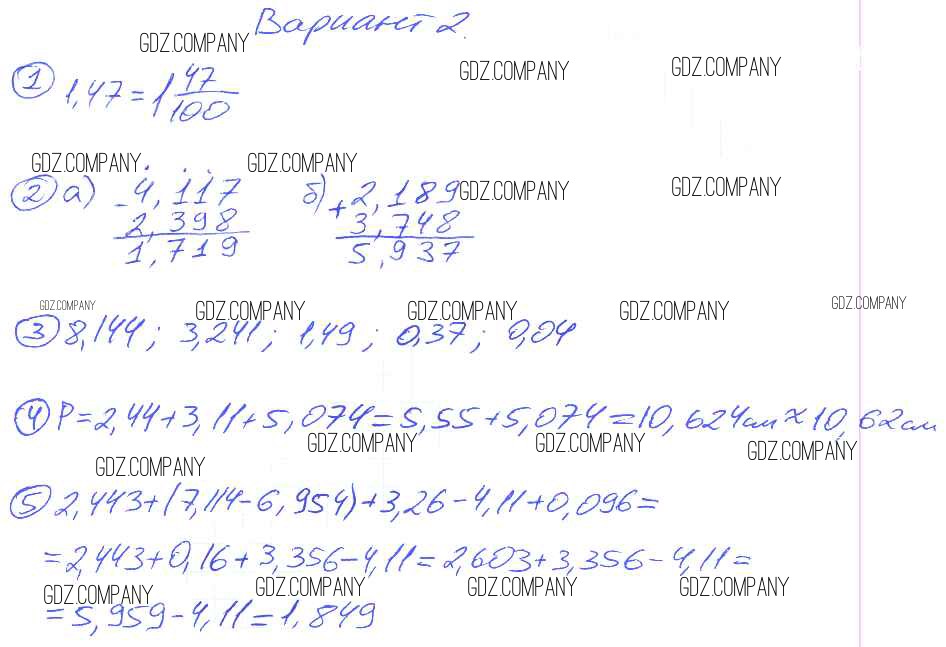 Вариант 2.
GDZ.COMPANY
GDZ.COMPANY GDZ.COMPANY
1 1,47 = 1 47/100
GDZ.COMPANY GDZ.COMPANY
2 а) - 4,117 б) + 2,189 GDZ.COMPANY GDZ.COMPANY
2,398 3,748
1,719 5,937
GDZ.COMPANY GDZ.COMPANY GDZ.COMPANY GDZ.COMPANY GDZ.COMPANY
3 8,144; 3,241; 1,49; 0,37; 0,04
4 P=2,44+3,11+5,074=5,55+5,074=10,624см≈10,62см
GDZ.COMPANY GDZ.COMPANY GDZ.COMPANY
GDZ.COMPANY
5 2,443+(7,114-6,954)+3,26-4,11+0,096=
=2,443+0,16+3,356-4,11=2,603+3,356-4,11=
GDZ.COMPANY GDZ.COMPANY GDZ.COMPANY GDZ.COMPANY
=5,959-4,11=1,849